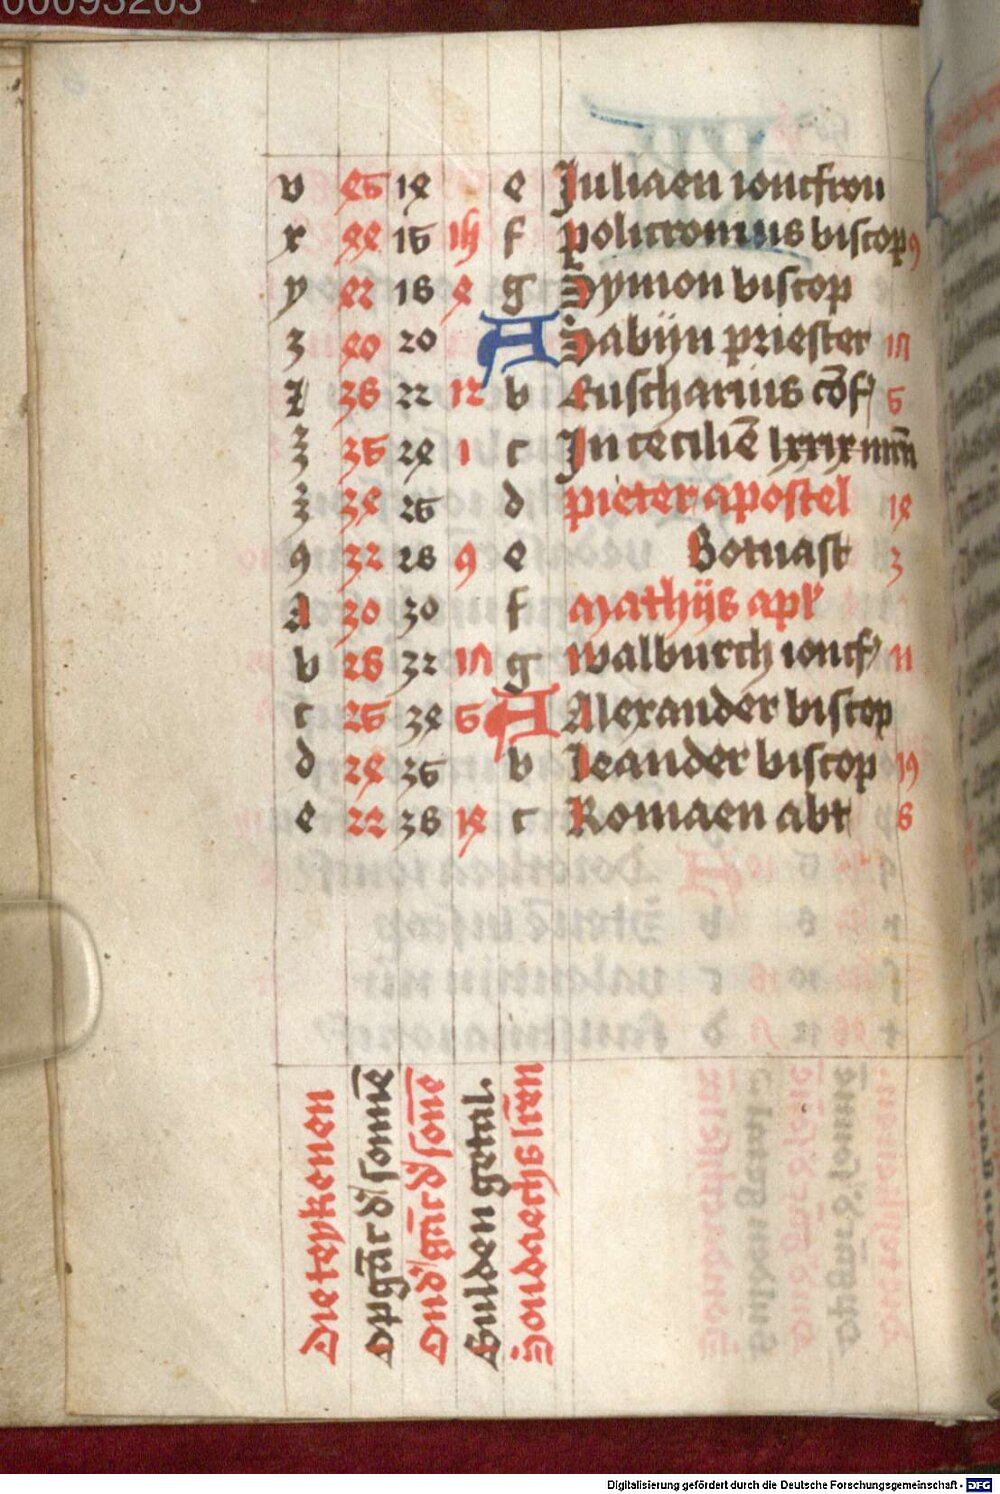 00093203
v 46 14 e Juliaen ioncfrou
x 44 16 14 f policronius biscop 9
y 42 18 4 g Symon biscop
z 40 20 A Sabijn priester 17
38 22 12 b Euscharius cōf 6
36 24 1 c In teciliē lxxix
34 26 d pieter apostel 14
9 32 28 9 e Botuast 3
A 30 30 f mathijs apl
b 28 32 17 g walburch ioncf 11
c 26 34 6 A Alexander biscop
d 24 36 b leander biscop 19
e 22 38 14 c Romaen abt 8
Die teykenen
opgāc d' sonnē
Ond'gāc d' sonē
Gulden getal.
Sondaechs lr̄en
Digitalisierung gefördert durch die Deutsche Forschungsgemeinschaft - DFG